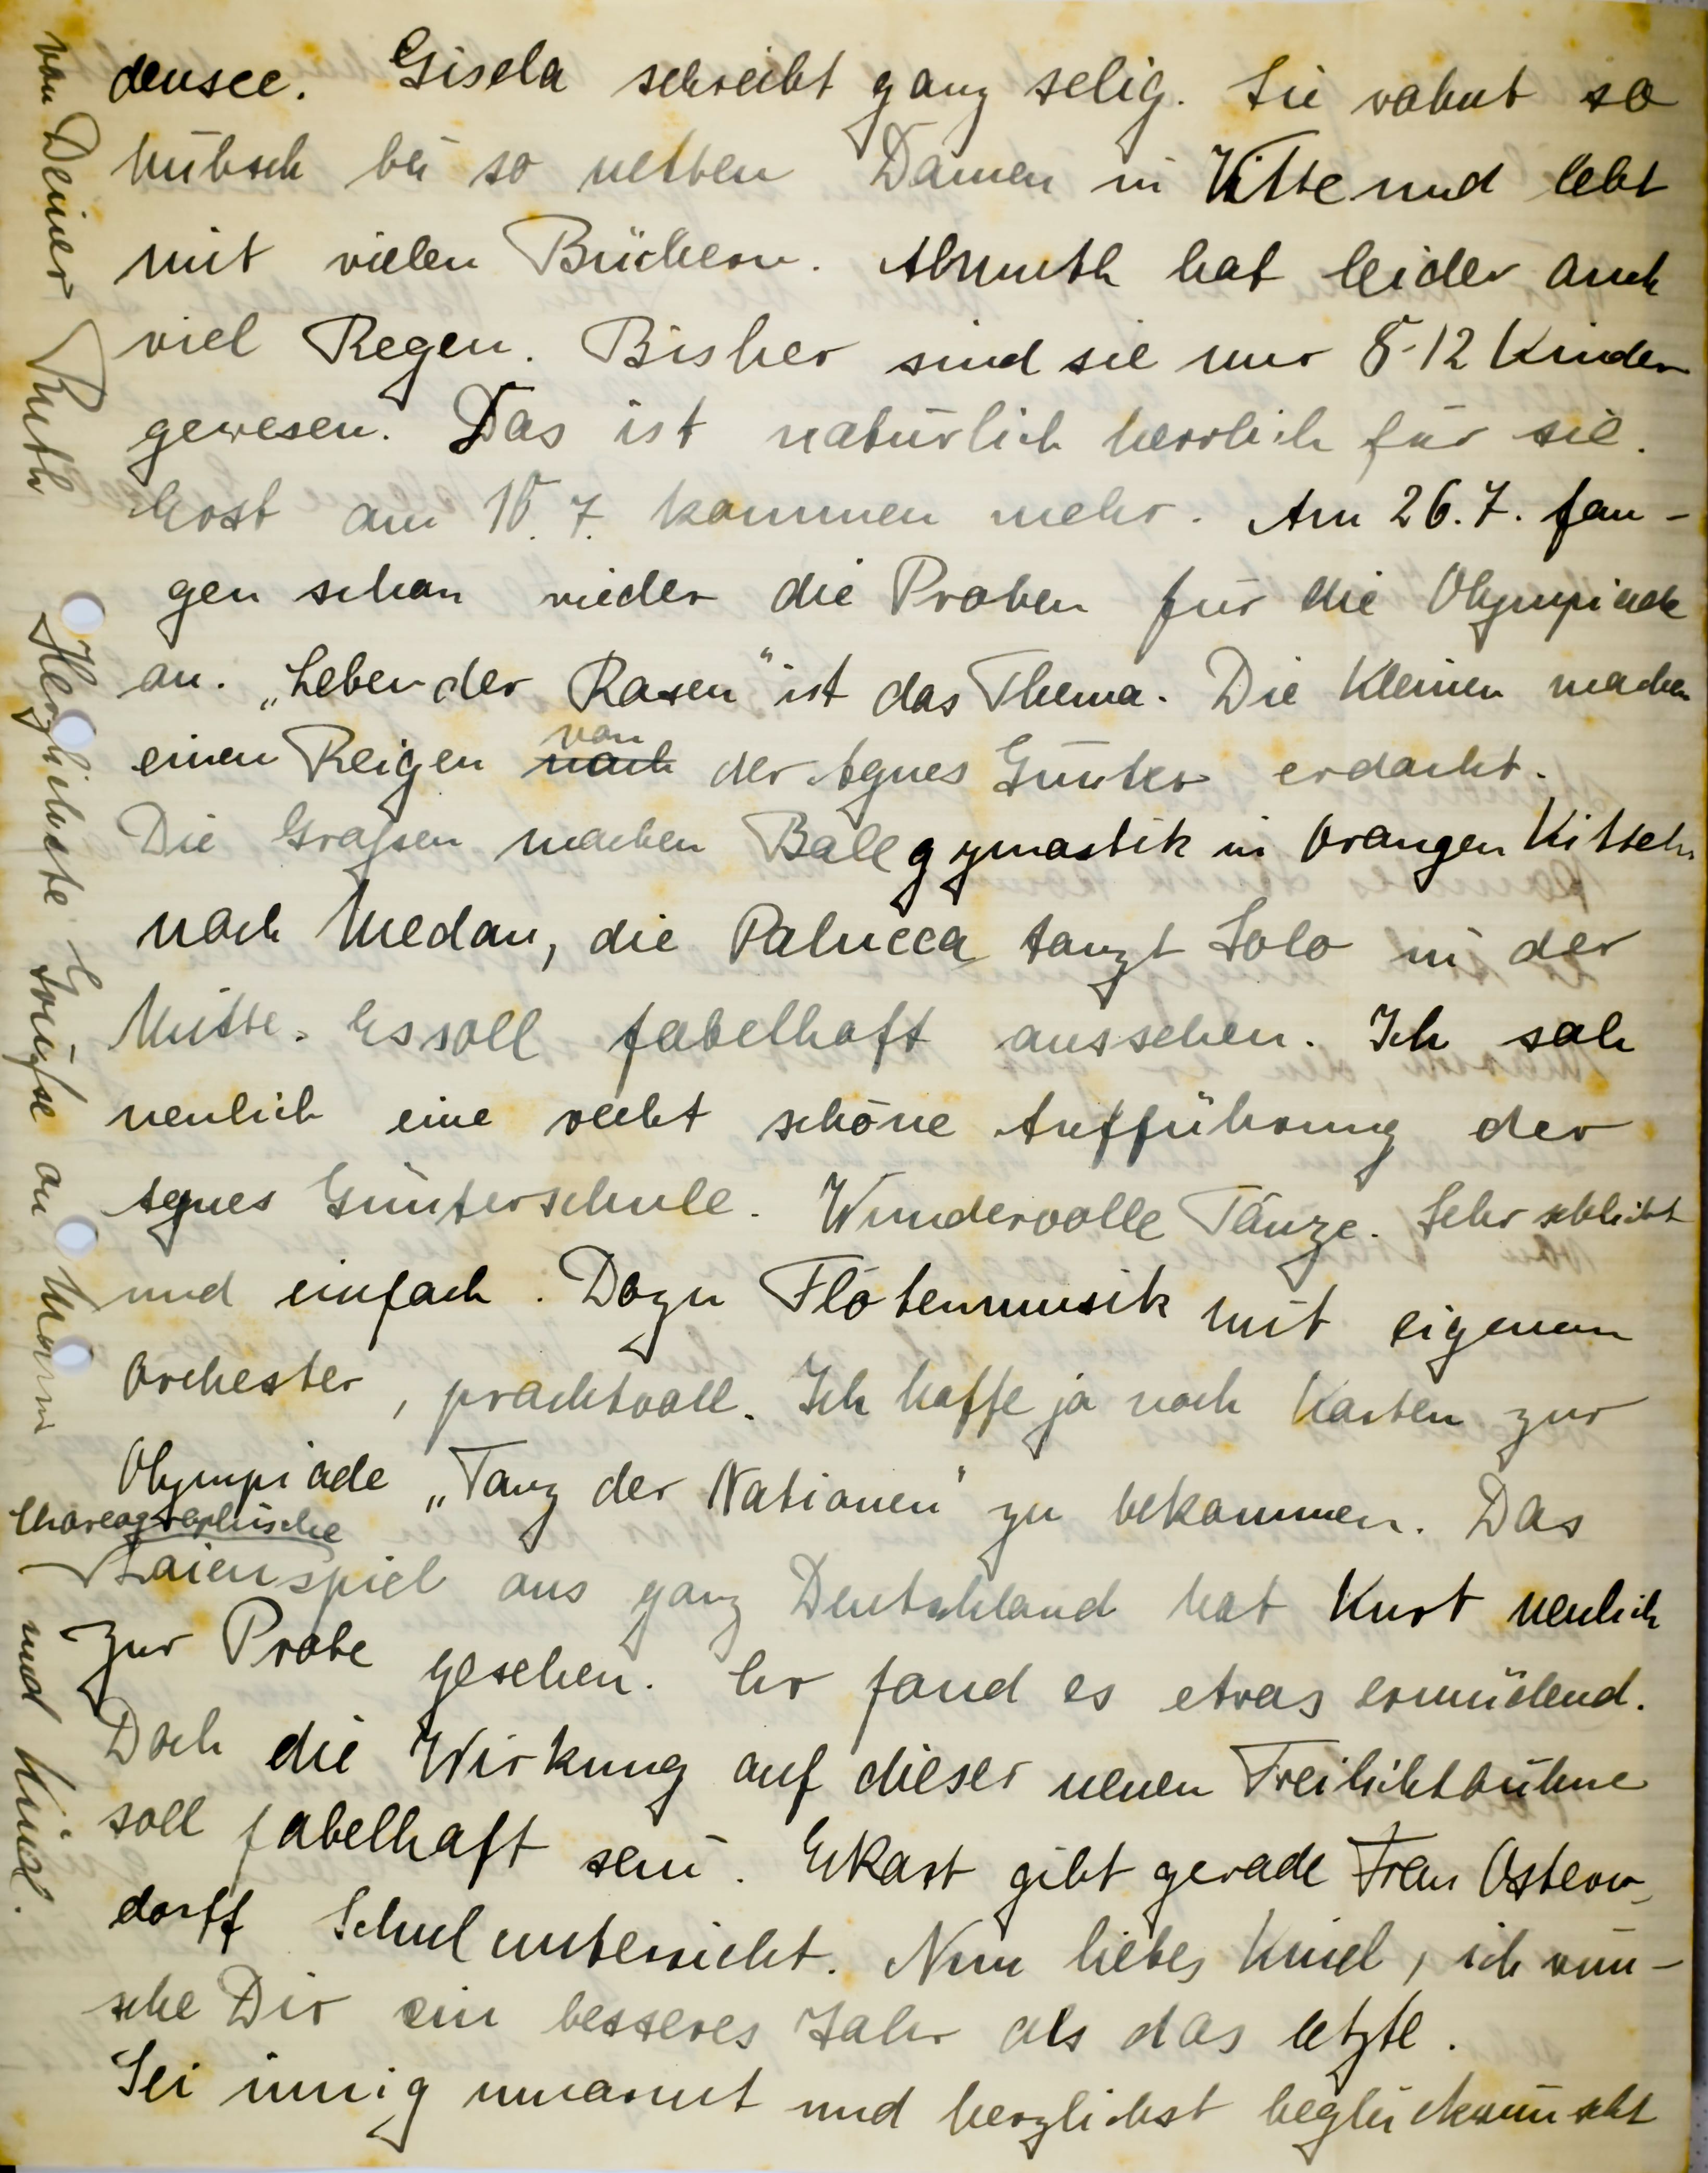 densee. Gisela schreibt ganz selig. Sie wohnt so
hübsch bei so netten Damen in Vitte und lebt
mit vielen Büchern. Almuth hat leider auch
viel Regen. Bisher sind sie nur 8-12 Kinder
gewesen. Das ist natürlich herrlich für sie.
Erst am 10.7. kommen mehr. Am 26.7. fan-
gen schon wieder die Proben für die Olympiade
an. „Lebender Rasen" ist das Thema. Die Kleinen machen
einen Reigen nach von der Agnes Günter erdacht.
Die Großen machen Ballgymastik in orangen Kitteln
nach Medau, die Palucca tanzt Solo in der
Mitte. Es soll fabelhaft aussehen. Ich sah
neulich eine recht schöne Aufführung der
Agnes Günterschule. Wundervolle Tänze. Sehr schlicht
und einfach. Dazu Flötenmusik mit eigenem
Orchester, prachtvoll. Ich hoffe ja noch Karten zur
Olympiade „Tanz der Nationen" zu bekommen. Das
Choreographische
Laienspiel aus ganz Deutschland hat Kurt neulich
zur Probe gesehen. Er fand es etwas ermüdend.
Doch die Wirkung auf dieser neuen Freilichtbühne
soll fabelhaft sein. Ekart gibt gerade Frau Ostern-
dorff Schulunterricht. Nun liebes Kind, ich wün-
sche Dir ein besseres Jahr als das letzte.
Sei innig umarmt und herzlichst beglückwünscht
von Deiner Ruth
Herzlichste Grüße an Mann und Kind.